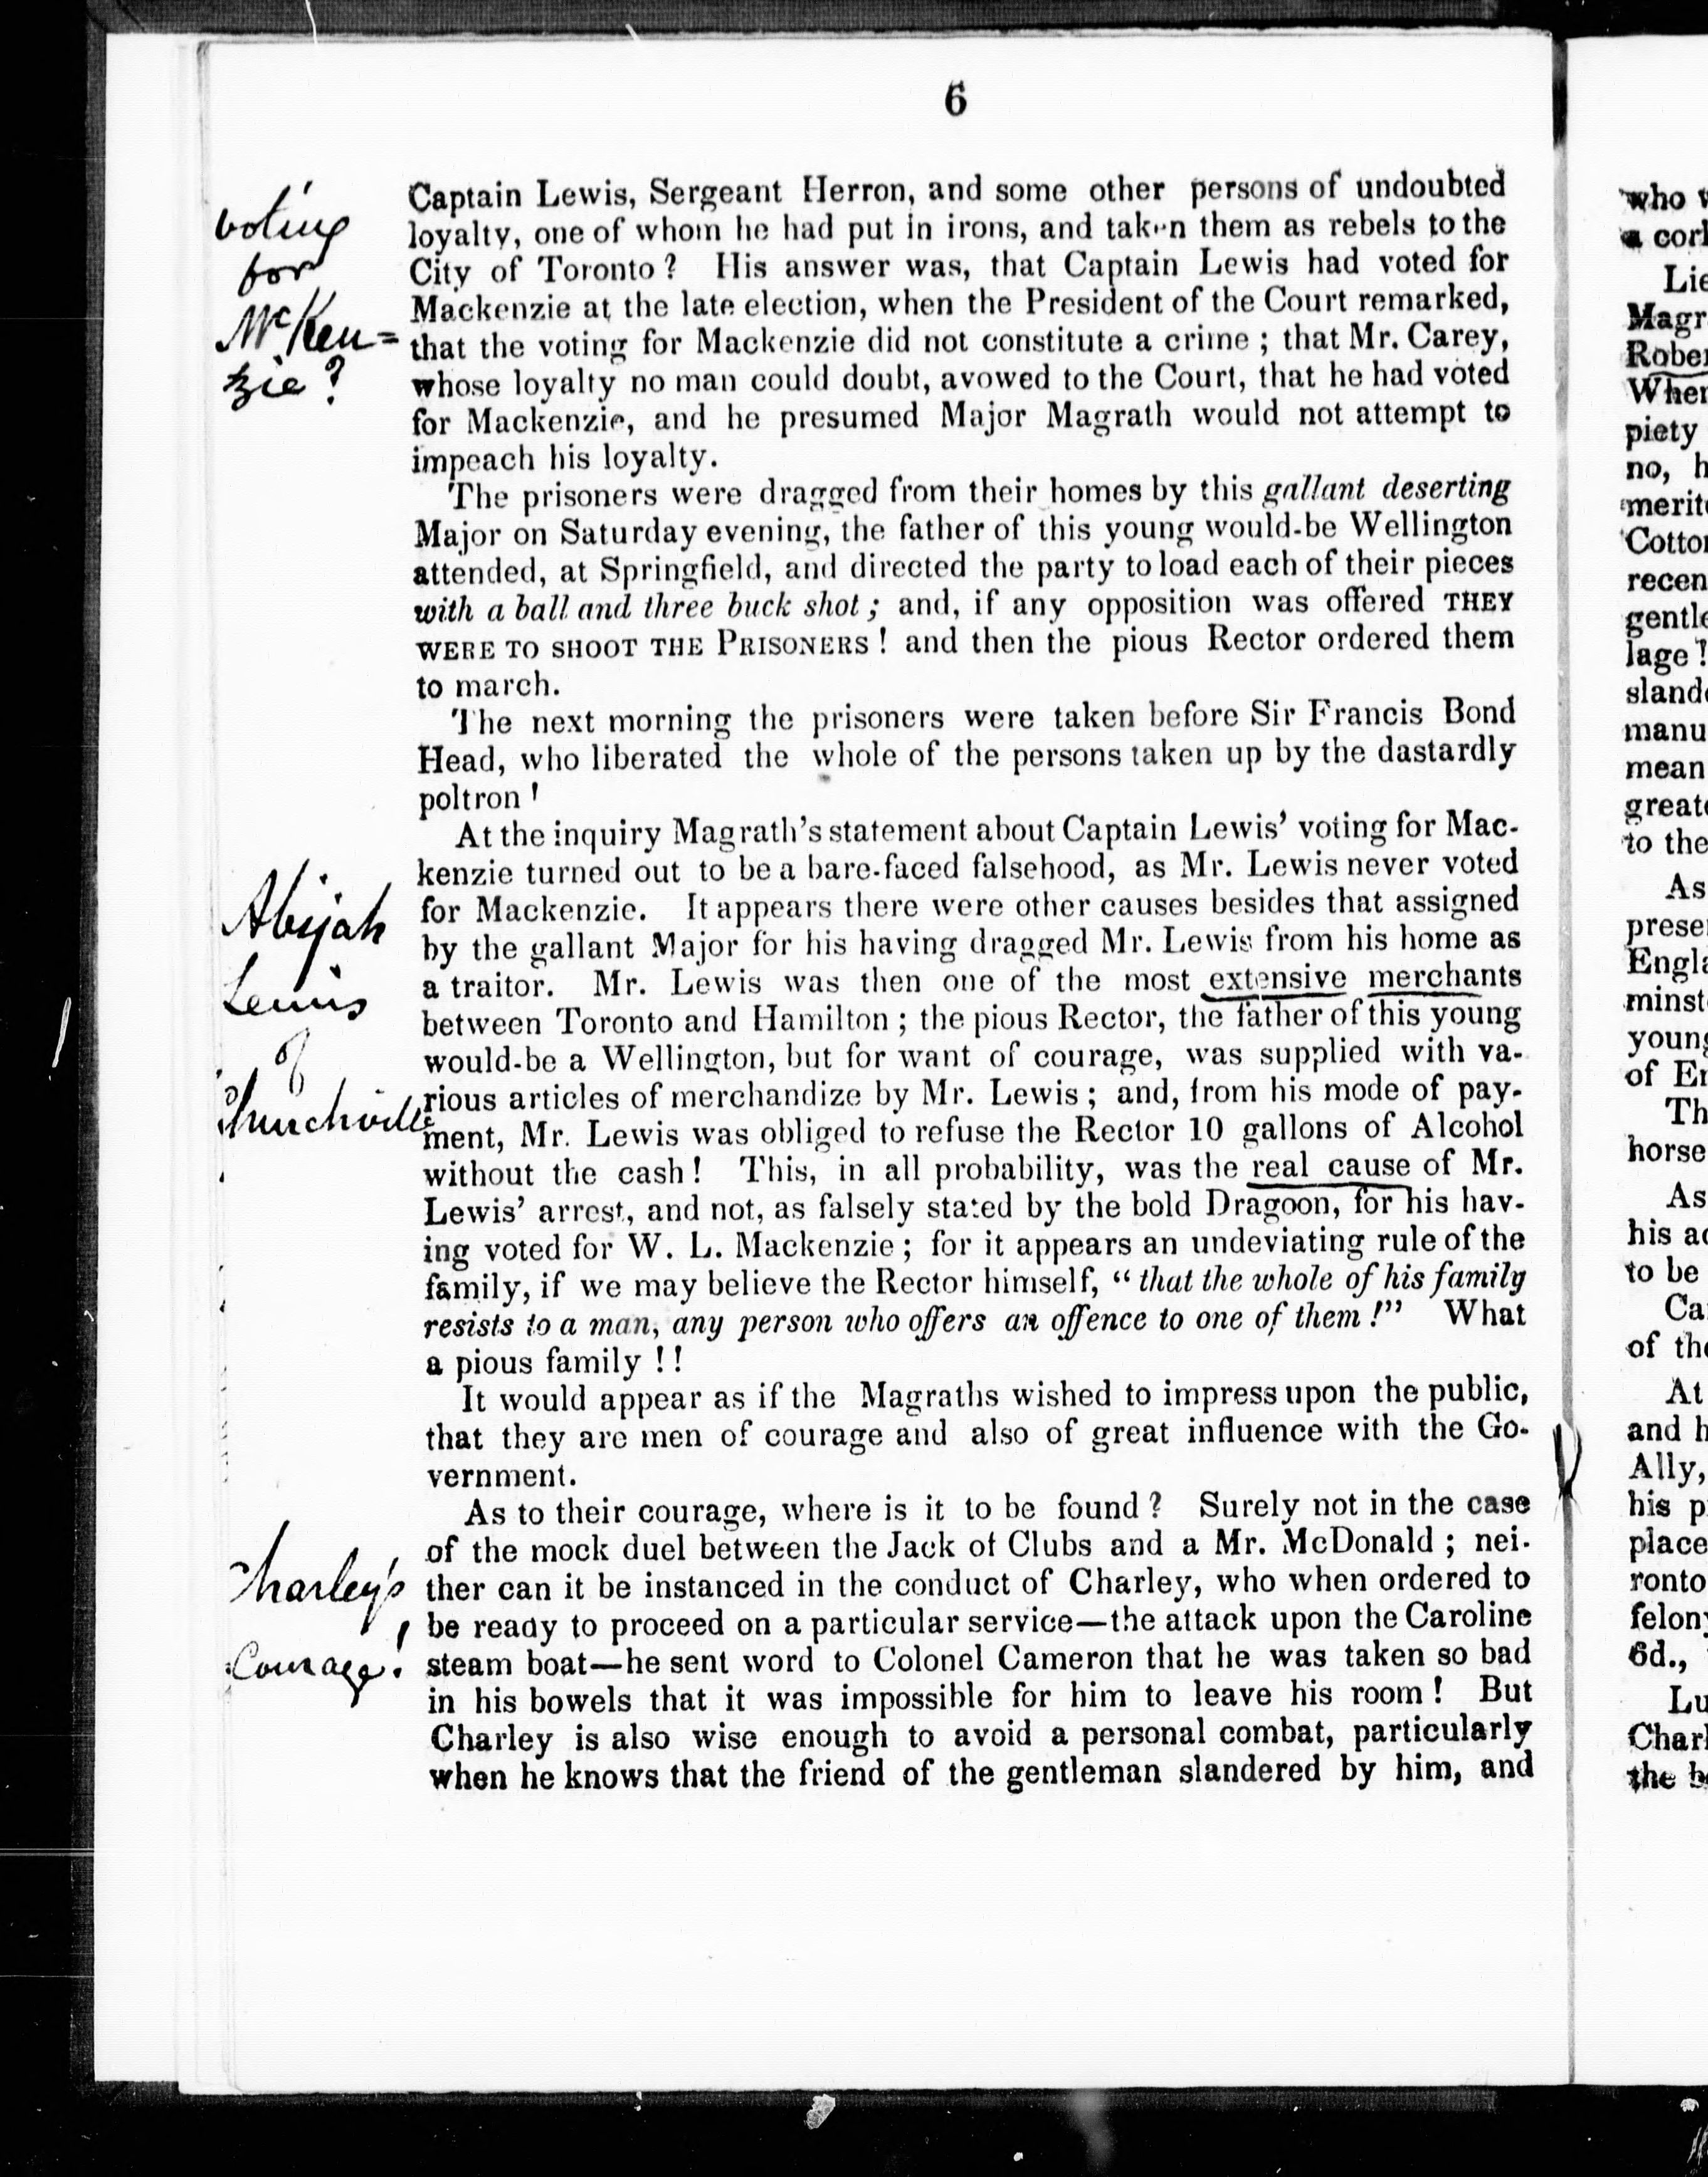 6
voting
for
McKen=
zie?
Captain Lewis, Sergeant Herron, and some other persons of undoubted
loyalty, one of whom he had put in irons, and taken them as rebels to the
City of Toronto? His answer was, that Captain Lewis had voted for
Mackenzie at the late election, when the President of the Court remarked,
that the voting for Mackenzie did not constitute a crime; that Mr. Carey,
whose loyalty no man could doubt, avowed to the Court, that he had voted
for Mackenzie, and he presumed Major Magrath would not attempt to
impeach his loyalty.
The prisoners were dragged from their homes by this gallant deserting
Major on Saturday evening, the father of this young would-be Wellington
attended, at Springfield, and directed the party to load each of their pieces
with a ball and three buck shot; and, if any opposition was offered THEY
WERE TO SHOOT THE PRISONERS! and then the pious Rector ordered them
to march.
The next morning the prisoners were taken before Sir Francis Bond
Head, who liberated the whole of the persons taken up by the dastardly
poltron!
Abijah
Lewis
of
Churchville
At the inquiry Magrath's statement about Captain Lewis' voting for Mac-
kenzie turned out to be a bare-faced falsehood, as Mr. Lewis never voted
for Mackenzie. It appears there were other causes besides that assigned
by the gallant Major for his having dragged Mr. Lewis from his home as
a traitor. Mr. Lewis was then one of the most extensive merchants
between Toronto and Hamilton; the pious Rector, the father of this young
would-be a Wellington, but for want of courage, was supplied with va-
rious articles of merchandize by Mr. Lewis; and, from his mode of pay-
ment, Mr. Lewis was obliged to refuse the Rector 10 gallons of Alcohol
without the cash! This, in all probability, was the real cause of Mr.
Lewis' arrest, and not, as falsely stated by the bold Dragoon, for his hav-
ing voted for W. L. Mackenzie; for it appears an undeviating rule of the
family, if we may believe the Rector himself, "that the whole of his family
resists to a man, any person who offers an offence to one of them!" What
a pious family!!
It would appear as if the Magraths wished to impress upon the public,
that they are men of courage and also of great influence with the Go-
vernment.
Charley's
Courage!
As to their courage, where is it to be found? Surely not in the case
of the mock duel between the Jack of Clubs and a Mr. McDonald; nei-
ther can it be instanced in the conduct of Charley, who when ordered to
be ready to proceed on a particular service—the attack upon the Caroline
steam boat—he sent word to Colonel Cameron that he was taken so bad
in his bowels that it was impossible for him to leave his room! But
Charley is also wise enough to avoid a personal combat, particularly
when he knows that the friend of the gentleman slandered by him, and
who
Lie
Magr
Rober
When
piety
no, h
merit
Cotto
recen
gentle
lage!
slande
manu
mean
greate
to the
As
prese
Engla
minst
young
of En
Th
horse
As
his ac
to be
Ca
of the
At
and h
Ally,
his p
place
ronto
felon
6d.,
Lu
Charl
the